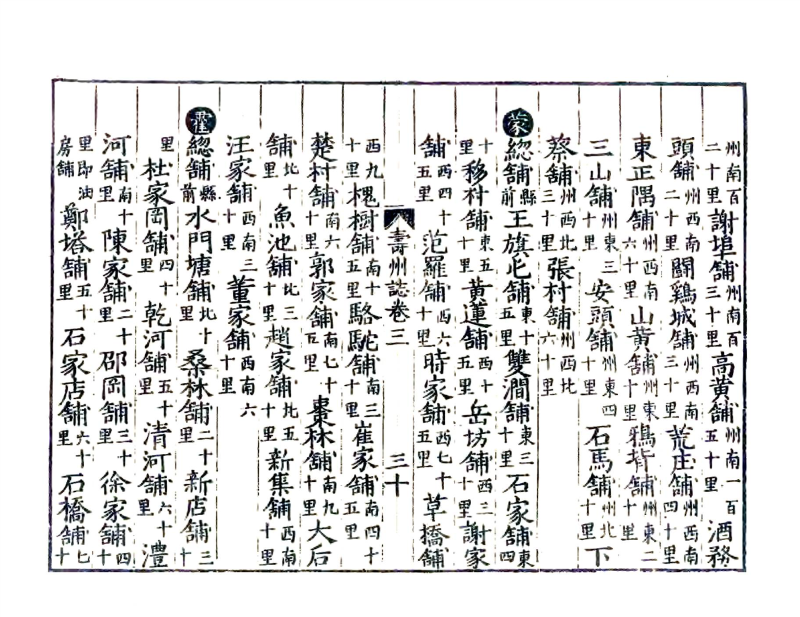 州南百二十里謝埠舖州南百三十里高黄舖州南一百五十里酒務
頭舖州西南二十里闘鷄城舖州西南三十里荒庄舖州西南四十里
東正隅舖州西南六十里山黄舖州東十里鴉背舖州東二十里
三山舖州東三十里安頭舖州東四十里石馬舖州北十里下
蔡舖州西北三十里張村舖州西北六十里
蒙總舖縣前王旗屯舖東十五里雙澗舖東三十里石家舖東四
十里移村舖東五十里黄蓮舖西十五里岳坊舖西三十里謝家
舖西四十五里范羅舖西六十里時家舖西七十五里草橋舖
壽州誌卷三 三十
西九十里槐樹舖南十五里駱駝舖南三十里崔家舖南四十五里
楚村舖南六十里郭家舖南七十五里棗林舖南九十里大后
舖北十里魚池舖北三十里趙家舖北五十里新集舖西南十里
汪家舖西南三十里董家舖西南六十里
霍總舖縣前水門塘舖北十里桑林舖二十里新店舖三十
里杜家岡舖四十里乾河舖五十里清河舖六十里澧
河舖南十里陳家舖二十里邵岡舖三十里徐家舖四十
里即油房舖鄭塔舖五十里石家店舖六十里石橋舖七十